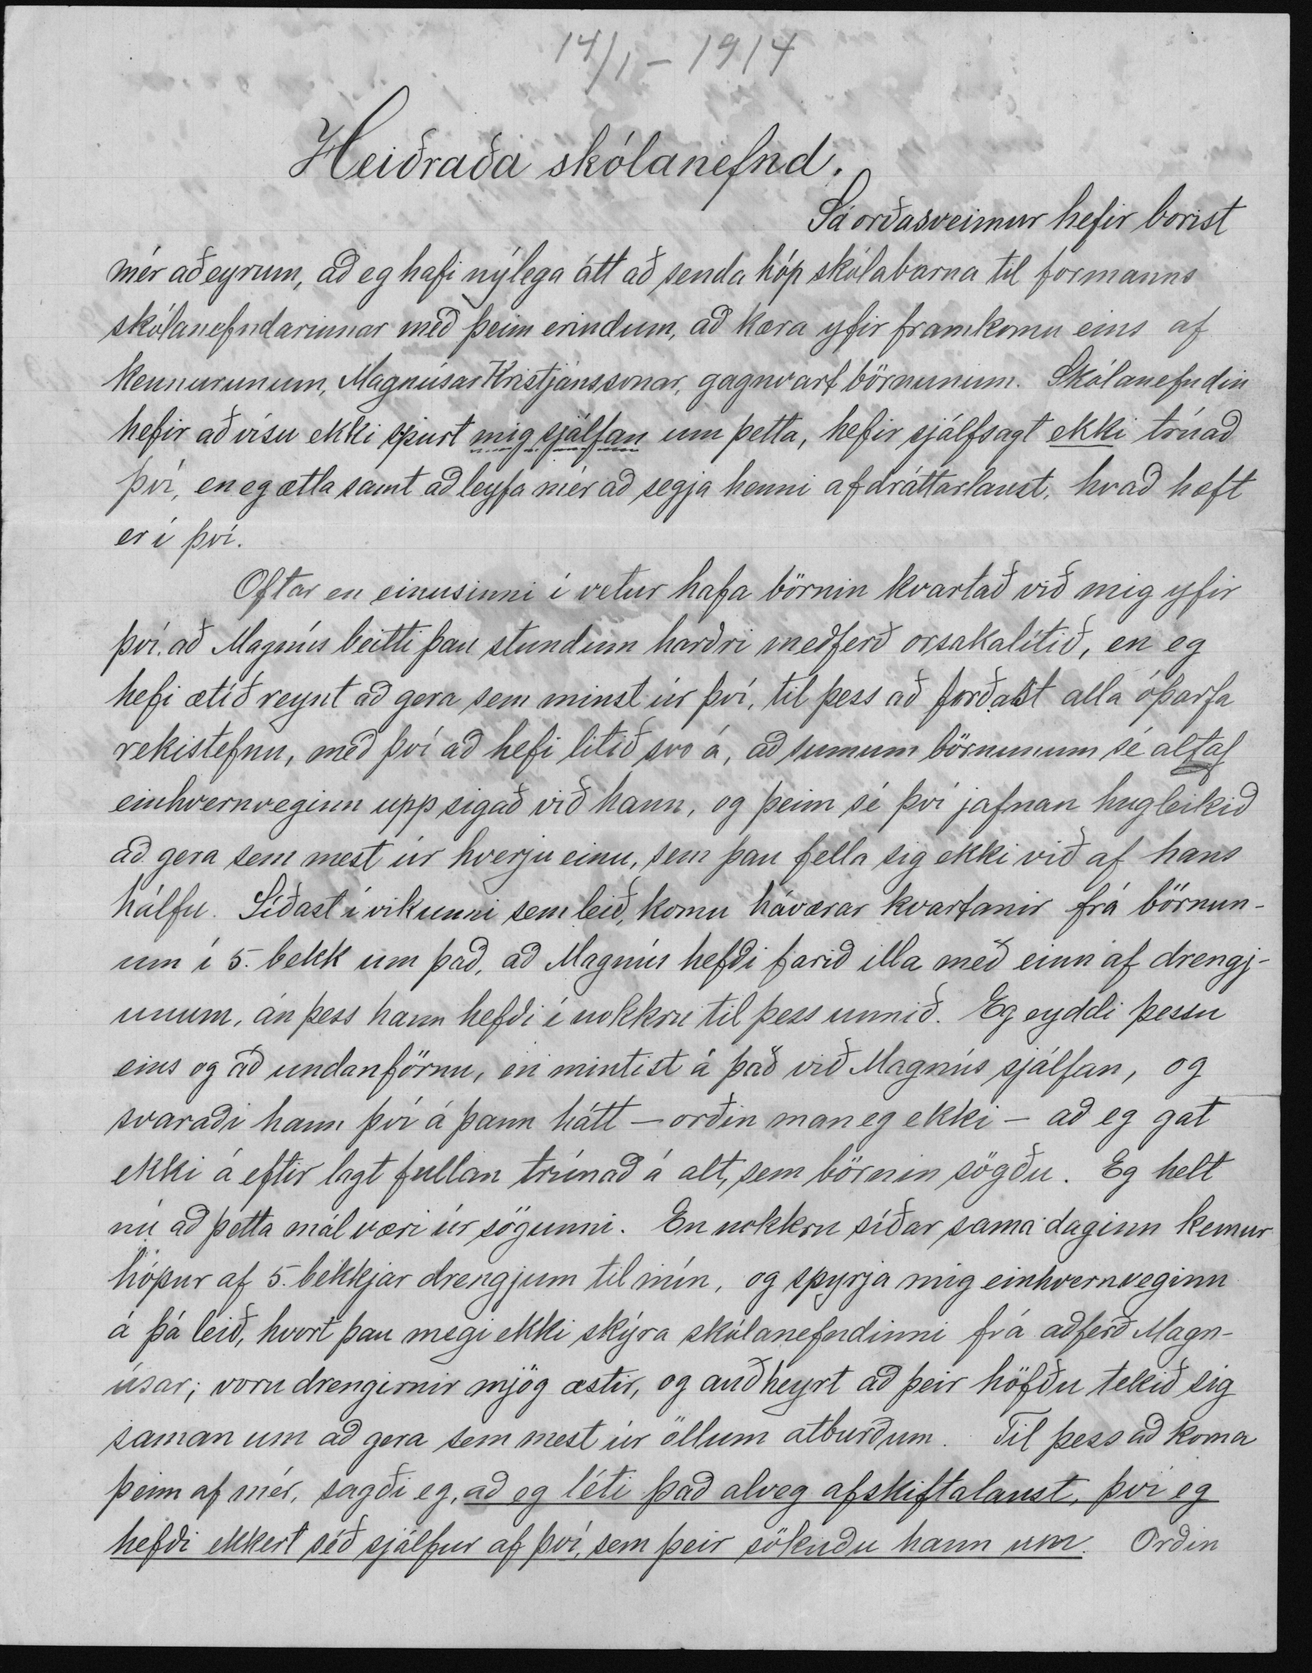 14/1 - 1914
Heiðraða skólanefnd.
Sá orðasveimur hefir borist
mér að eyrum, að eg hafi nýlega átt að senda hóp skólabarna til formanns
skólanefndarinnar með þeim erindum, að kæra yfir framkomu eins af
kennurunum, Magnúsar Kristjánssonar, gagnvart börnunum. Skólanefndin
hefir að vísu ekki spurt mig sjálfan um þetta, hefir sjálfsagt ekki trúað
því, en eg ætla samt að leyfa mér að segja henni afdráttarlaust, hvað hæft
er í því.
Oftar en einusinni í vetur hafa börnin kvartað við mig yfir
því að Magnús beitti þau stundum harðri meðferð orsakalítið, en eg
hefi ætíð reynt að gera sem minst úr því, til þess að forðast alla óþarfa
rekistefnu, með því að hefi litið svo á, að sumum börnunum sé altaf
einhvernveginn uppsigað við hann, og þeim sé því jafnan hugleikið
að gera sem mest úr hverju einu, sem þau fella sig ekki við af hans
hálfu. Síðast í vikunni sem leið, komu háværar kvartanir frá börnun-
um í 5. bekk um það, að Magnús hefði farið illa með einn af drengj-
unum, án þess hann hefði í nokkru til þess unnið. Eg eyddi þessu
eins og að undanförnu, en mintist á það við Magnús sjálfan, og
svaraði hann því á þann hátt - orðin man eg ekki - að eg gat
ekki á eftir lagt fullan trúnað á alt, sem börnin sögðu. Eg helt
nú að þetta mál væri úr sögunni. En nokkru síðar sama daginn kemur
hópur af 5. bekkjar drengjum til mín, og spyrja mig einhvernveginn
á þá leið, hvort þau megi ekki skýra skólanefndinni frá aðferð Magn-
úsar; voru drengirnir mjög æstir, og auðheyrt að þeir höfðu tekið sig
saman um að gera sem mest úr öllum atburðum. Til þess að koma
þeim af mér, sagði eg, að eg léti það alveg afskiftalaust, því eg
hefði ekkert séð sjálfur af því, sem þeir sökuðu hann um. Orðin